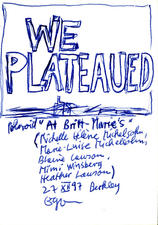 WE
PLATEAUED
Polaroid "At Britt-Marie's"
(Michelle Hélène Michelsohn,
Marie-Luise Michelsohn,
Blaine Lawson,
Mimi Winsberg,
Heather Lawson)
27 XII 97 Berkeley